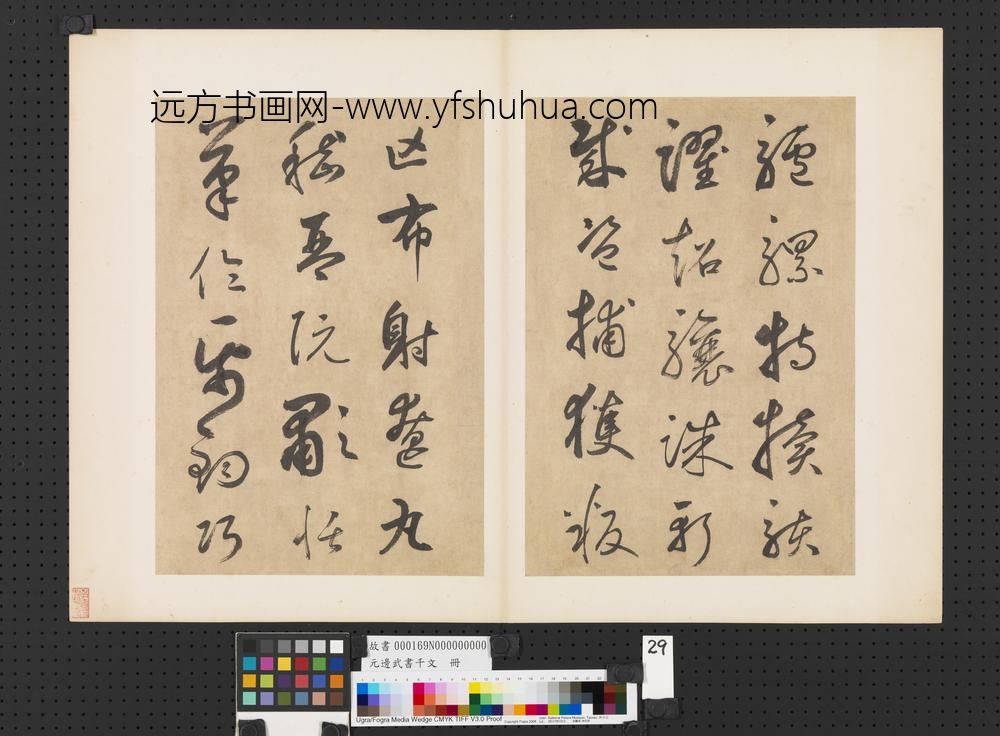 远方书画网-www.yfshuhua.com
驢騾特犢駭
躍超驤誅斬
賊盜捕獲叛
亡布射遼丸
嵇琴阮歗恬
筆倫帋鈞巧
故書 000169N000000000
元邊武書千文 冊
29
Ugra/Fogra Media Wedge CMYK TIFF V3.0 Proof